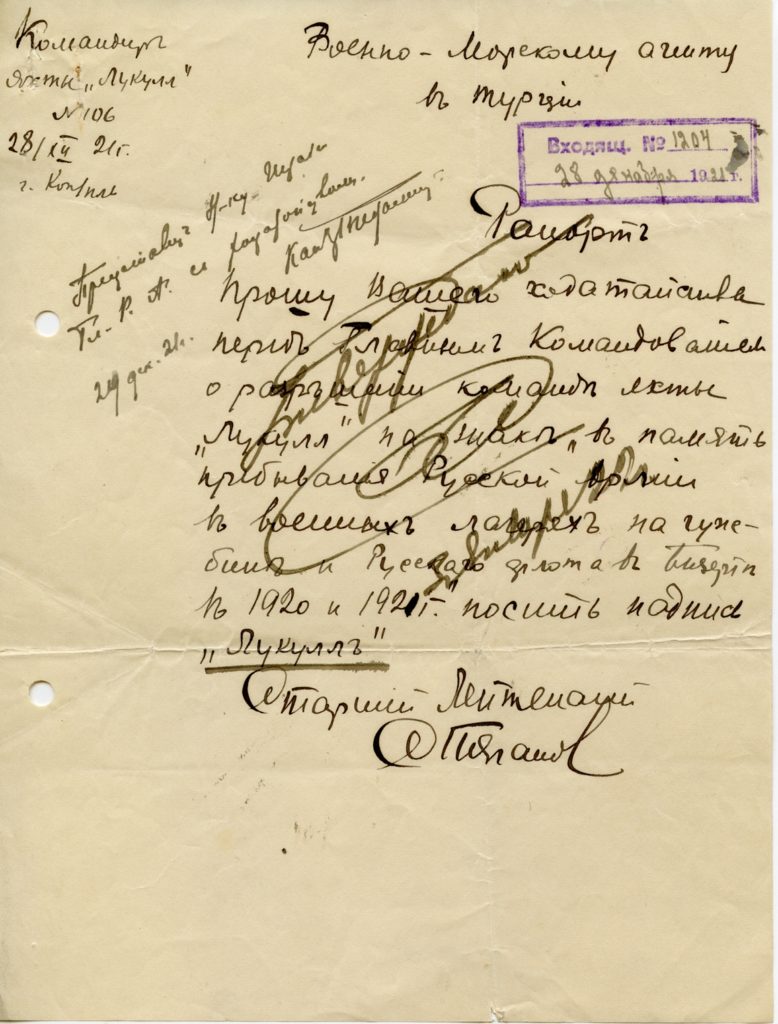 Командиръ
яхты „Лукулл"
N 106
28/XII 21г.
г. Конпль
Военно-Морскому агенту
въ Турціи
Входящ. № 1204
28 декабря 1921 г.
Гл. Р. А.
29 дек. 21г.
Рапортъ
Прошу Вашего ходатайства
передъ Главнымъ Командованіем
о разрѣшеніи командѣ яхты
„Лукулл" на знакѣ „въ память
пребыванія Русской Арміи
въ военныхъ лагеряхъ на чуж-
бинѣ и Русскаго флота въ Бизертѣ
въ 1920 и 1921г." носить надпись
„Лукуллъ"
Старший Лейтенант